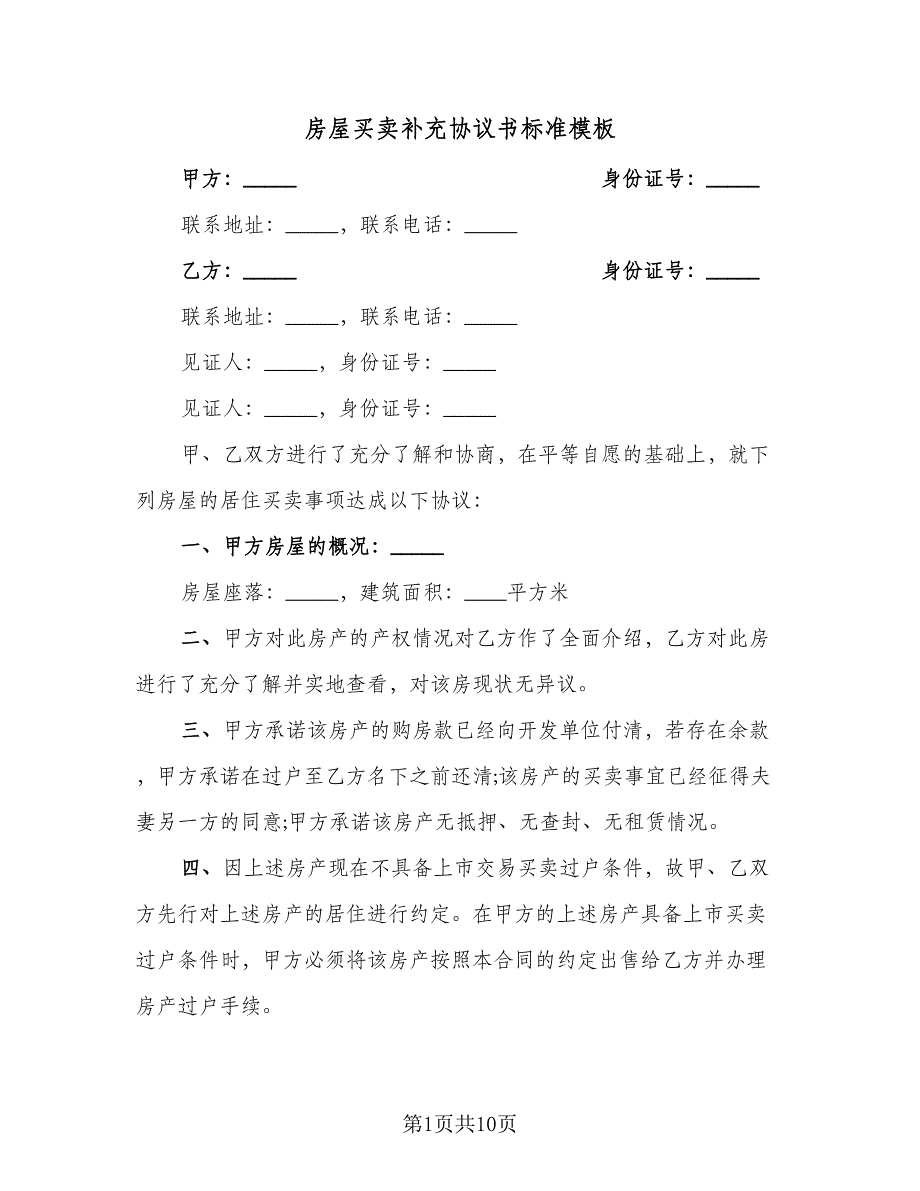 房屋买卖补充协议书标准模板
甲方：_____ 身份证号：_____
联系地址：_____，联系电话：_____
乙方：_____ 身份证号：_____
联系地址：_____，联系电话：_____
见证人：_____，身份证号：_____
见证人：_____，身份证号：_____
甲、乙双方进行了充分了解和协商，在平等自愿的基础上，就下
列房屋的居住买卖事项达成以下协议：
一、甲方房屋的概况：_____
房屋座落：_____，建筑面积：____平方米
二、甲方对此房产的产权情况对乙方作了全面介绍，乙方对此房
进行了充分了解并实地查看，对该房现状无异议。
三、甲方承诺该房产的购房款已经向开发单位付清，若存在余款
，甲方承诺在过户至乙方名下之前还清;该房产的买卖事宜已经征得夫
妻另一方的同意;甲方承诺该房产无抵押、无查封、无租赁情况。
四、因上述房产现在不具备上市交易买卖过户条件，故甲、乙双
方先行对上述房产的居住进行约定。在甲方的上述房产具备上市买卖
过户条件时，甲方必须将该房产按照本合同的约定出售给乙方并办理
房产过户手续。
第1页共10页